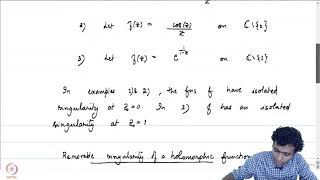 2) Let f(z) = cos(z)/z on ℂ\{0}
3) Let f(z) = e^{1/(1-z)} on ℂ\{1}
In examples 1) & 2), the fns f have isolated
singularity at z₀=0. In 3) f has an isolated
singularity at z₀=1
Removable singularity of a holomorphic function